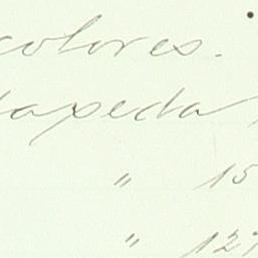 colores.
taxeda
" 15
" 127